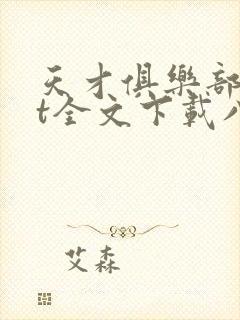 天才俱樂部
t全文下載八
艾森